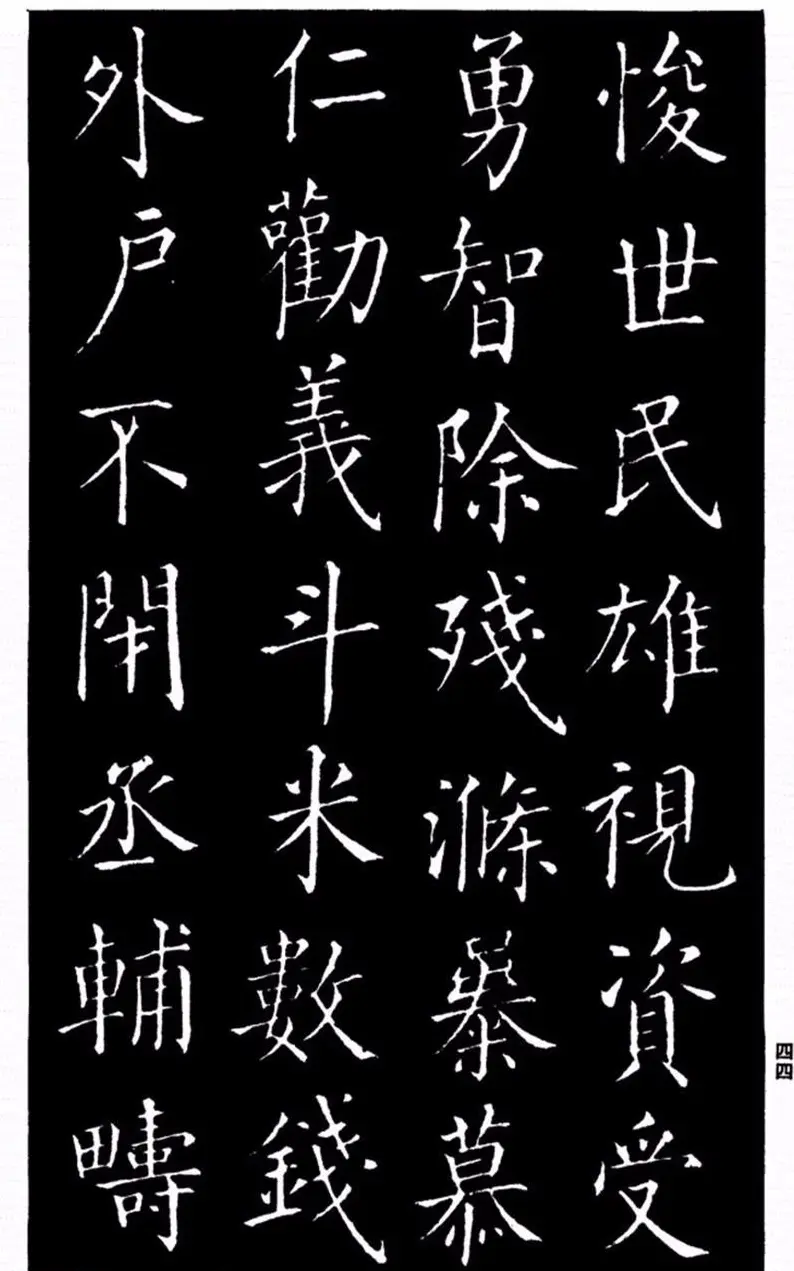 悛世民雄視資受
勇智除殘滌㬥慕
仁勸義斗米數錢
外户不閇丞輔疇
四四